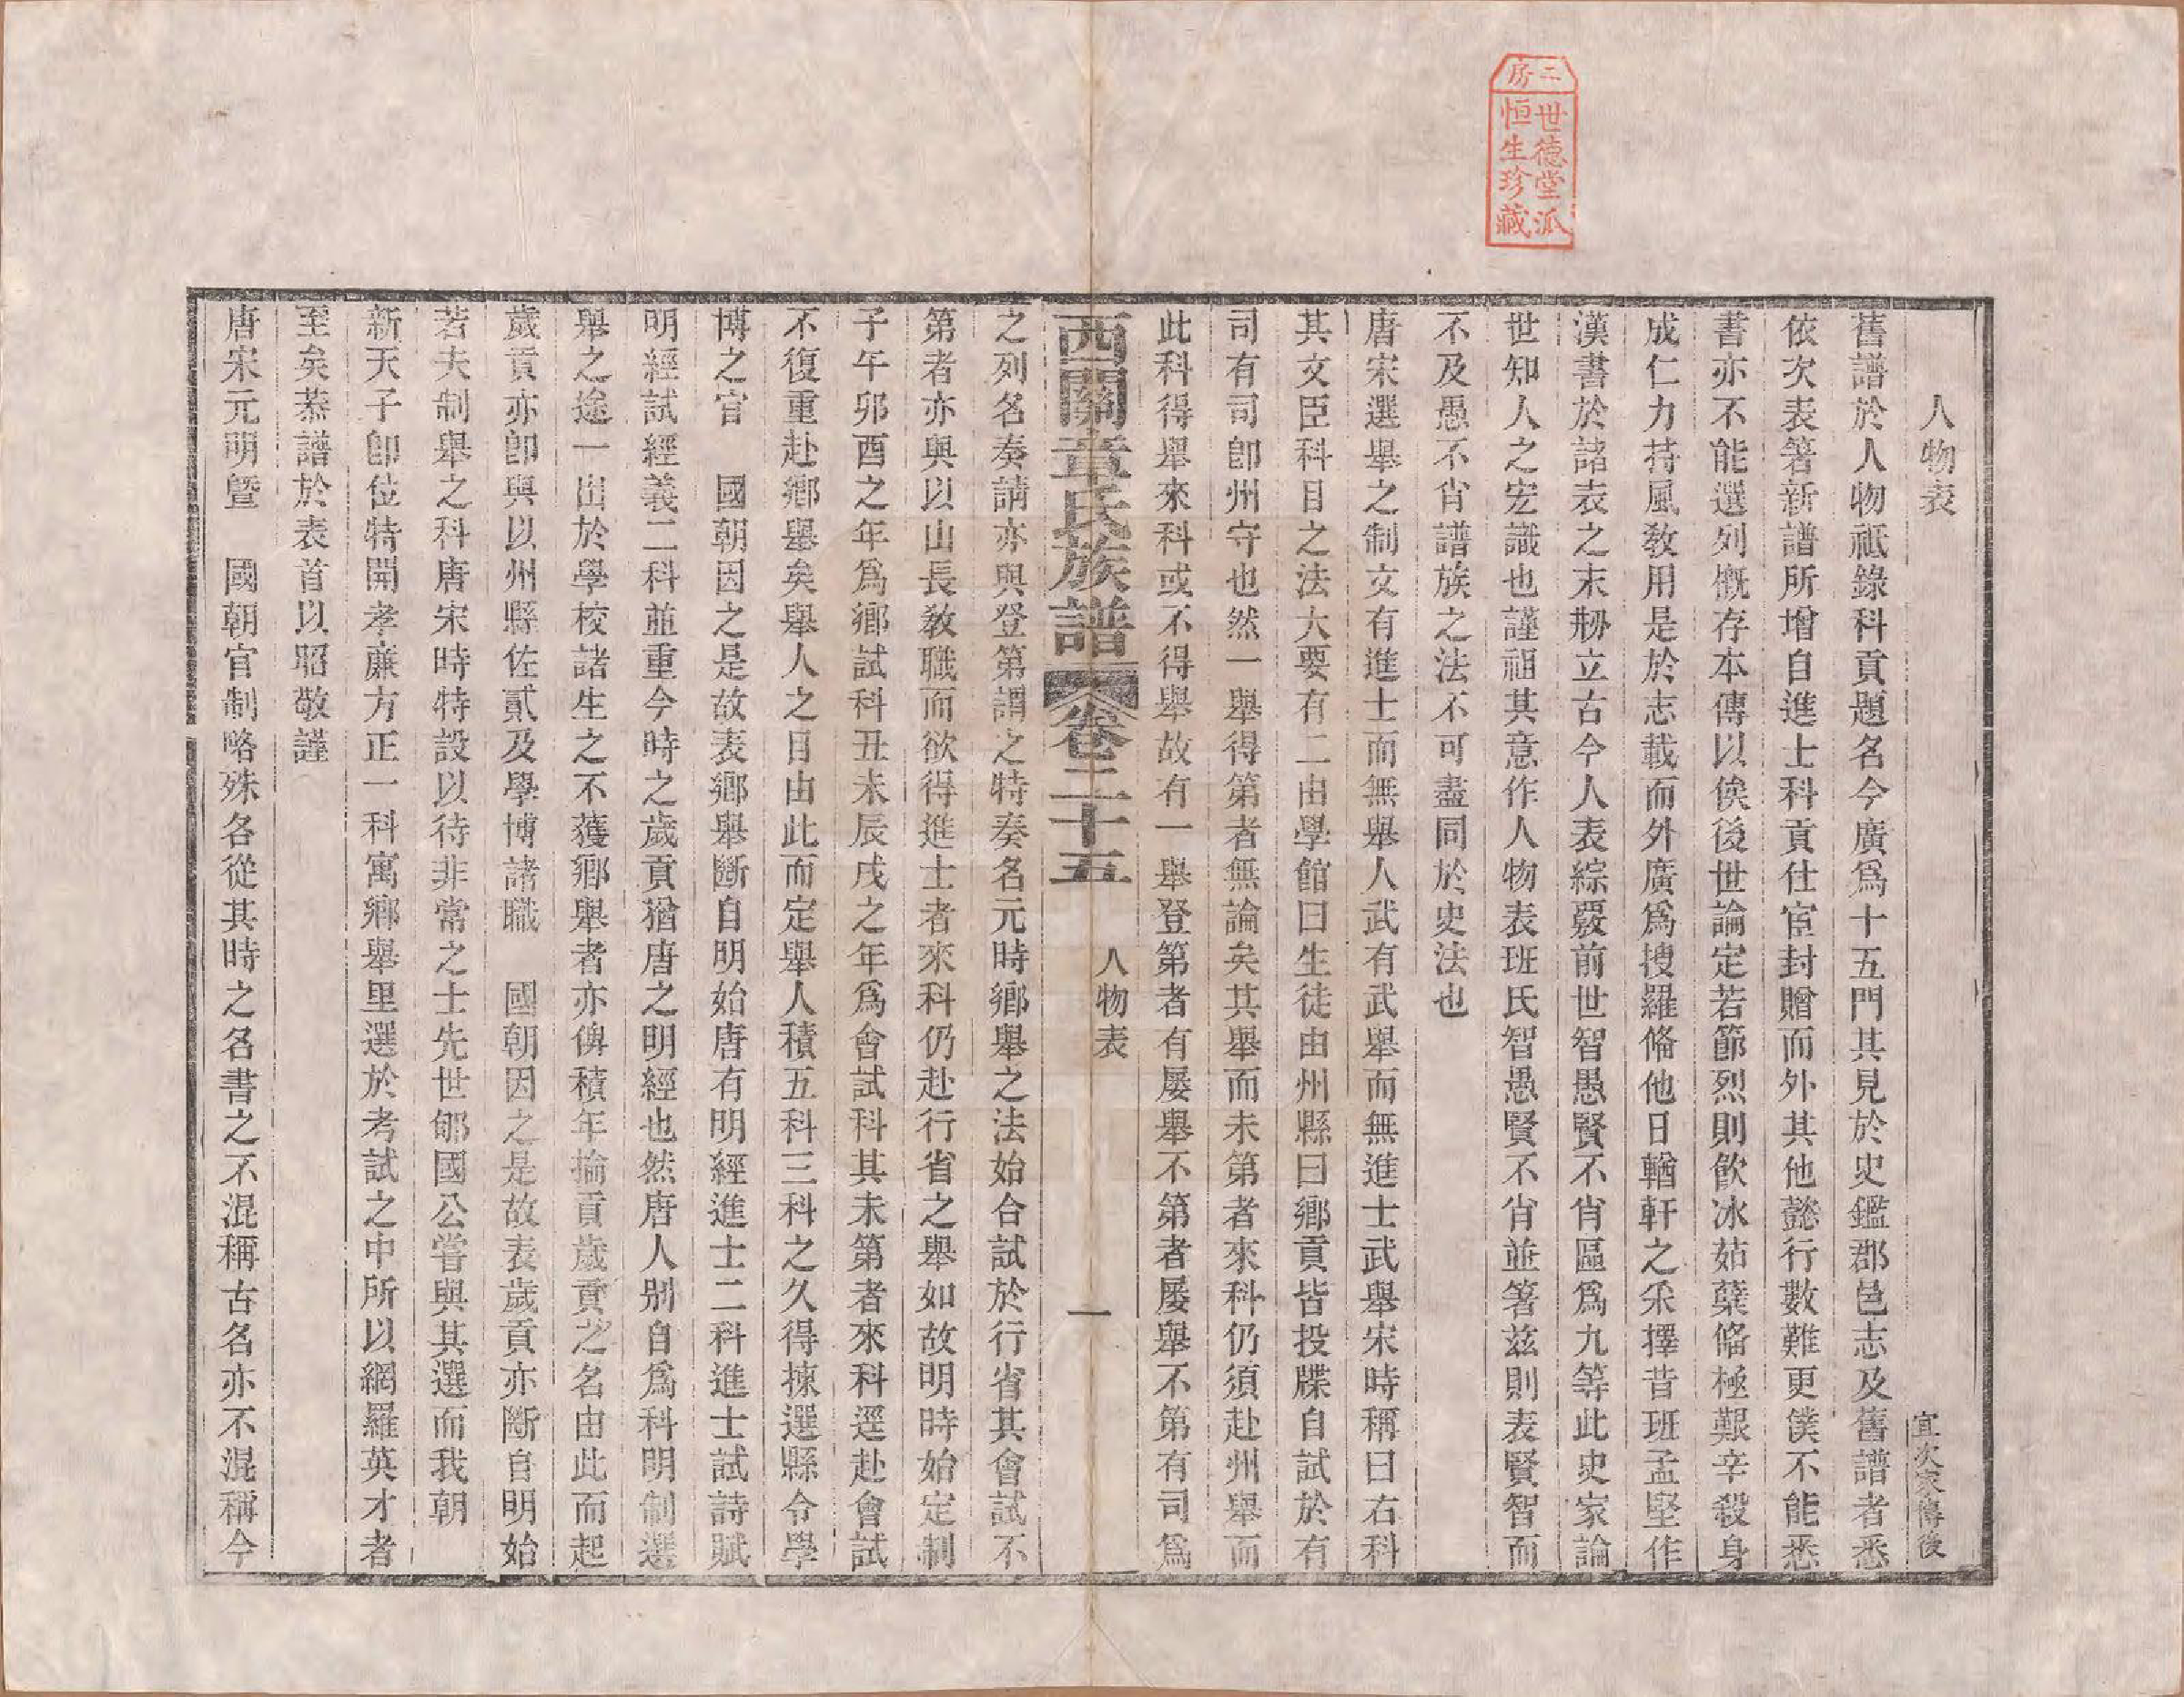 二房
世德堂派
恒生珍藏
人物表
宜次家傳後
舊譜於人物祗錄科貢題名今廣爲十五門其見於史鑑郡邑志及舊譜者悉
依次表箸新譜所增自進士科貢仕宦封贈而外其他懿行數難更僕不能悉
書亦不能選列慨存本傳以俟後世論定若節烈則飮冰茹蘗俻極艱辛殺身
成仁力持風敎用是於志載而外廣爲搜羅俻他日輶軒之采擇昔班孟堅作
漢書於諸表之末剏立古今人表綜覈前世智愚賢不肖區爲九等此史家論
世知人之宏識也謹祖其意作人物表班氏智愚賢不肖並箸兹則表賢智而
不及愚不肖譜族之法不可盡同於史法也
唐宋選舉之制文有進士而無舉人武有武舉而無進士武舉宋時稱曰右科
其文臣科目之法大要有二由學館曰生徒由州縣曰鄕貢皆投牒自試於有
司有司卽州守也然一舉得第者無論矣其舉而未第者來科仍須赴州舉而
此科得舉來科或不得舉故有一舉登第者有屡舉不第者屡舉不第有司爲
西關章氏族譜 卷二十五 人物表 一
之列名奏請亦與登第謂之特奏名元時鄕舉之法始合試於行省其會試不
第者亦與以山長敎職而欲得進士者來科仍赴行省之舉如故明時始定制
子午卯酉之年爲鄕試科丑未辰戌之年爲會試科其未第者來科逕赴會試
不復重赴鄕舉矣舉人之目由此而定舉人積五科三科之久得揀選縣令學
博之官　國朝因之是故表鄕舉斷自明始唐有明經進士二科進士試詩賦
明經試經義二科並重今時之歲貢猶唐之明經也然唐人别自爲科明制選
舉之途一出於學校諸生之不獲鄕舉者亦俾積年掄貢歲貢之名由此而起
歲貢亦卽與以州縣佐貳及學博諸職　國朝因之是故表歲貢亦斷自明始
若夫制舉之科唐宋時特設以待非常之士先世郇國公嘗與其選而我朝
新天子卽位特開孝廉方正一科寓鄕舉里選於考試之中所以網羅英才者
至矣恭譜於表首以昭敬謹
唐宋元明曁　國朝官制略殊各從其時之名書之不混稱古名亦不混稱今